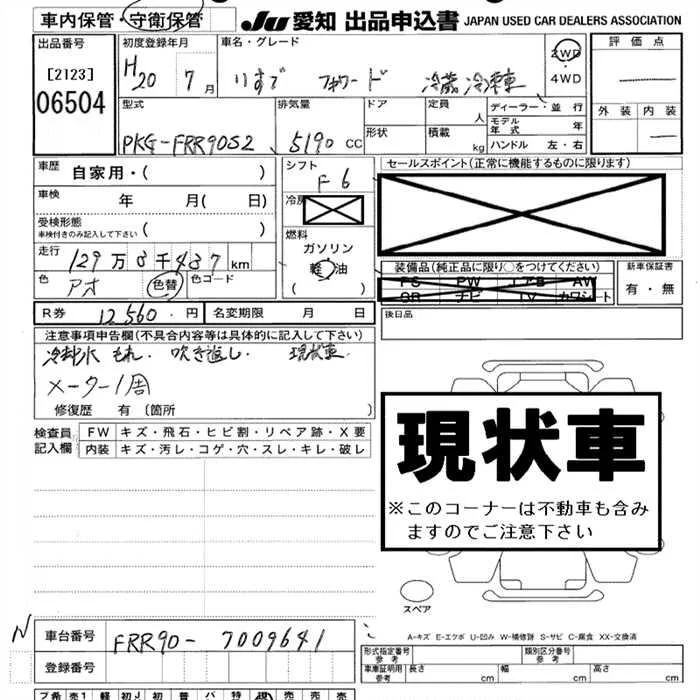 車内保管・守衛保管
JU 愛知 出品申込書 JAPAN USED CAR DEALERS ASSOCIATION
出品番号 初度登録年月 車名・グレード 2WD・4WD 評価点
[2123] H20 7月 いすゞ フォワード 冷蔵冷凍車
06504
型式 排気量 ドア 定員 人 ディーラー・並行 外装 内装
PKG-FRR90S2 5190 CC 形状 積載 kg モデル年式 年
ハンドル 左・右
車歴 自家用・( ) シフト F6 セールスポイント(正常に機能するものに限ります)
車検 年 月( 日) 冷房
受検形態 車検付きのみ記入して下さい ( ) 燃料
ガソリン
軽油
( )
走行 129万8千487km
装備品(純正品に限り○をつけてください) 新車保証書
色 アオ 色替 色コード
PS PW エアB AW 有・無
SR ナビ TV カワシート
R券 12,560円 名変期限 月 日 後日品
注意事項申告欄(不具合内容等は具体的に記入して下さい)
冷却水もれ. 吹き返し. 現状車
メーター1周
修復歴 有 〔箇所 〕
検査員記入欄 FW キズ・飛石・ヒビ割・リペア跡・X要
内装 キズ・汚レ・コゲ・穴・スレ・キレ・破レ
現状車
※このコーナーは不動車も含みますのでご注意下さい
スペア
A-キズ E-エクボ U-凹み W-補修跡 S-サビ C-腐食 XX-交換済
N 車台番号 FRR90-7009641
登録番号
形式指定番号 参考 類別区分番号 参考
車庫証明用 参考 長さ cm 幅 cm 高さ cm